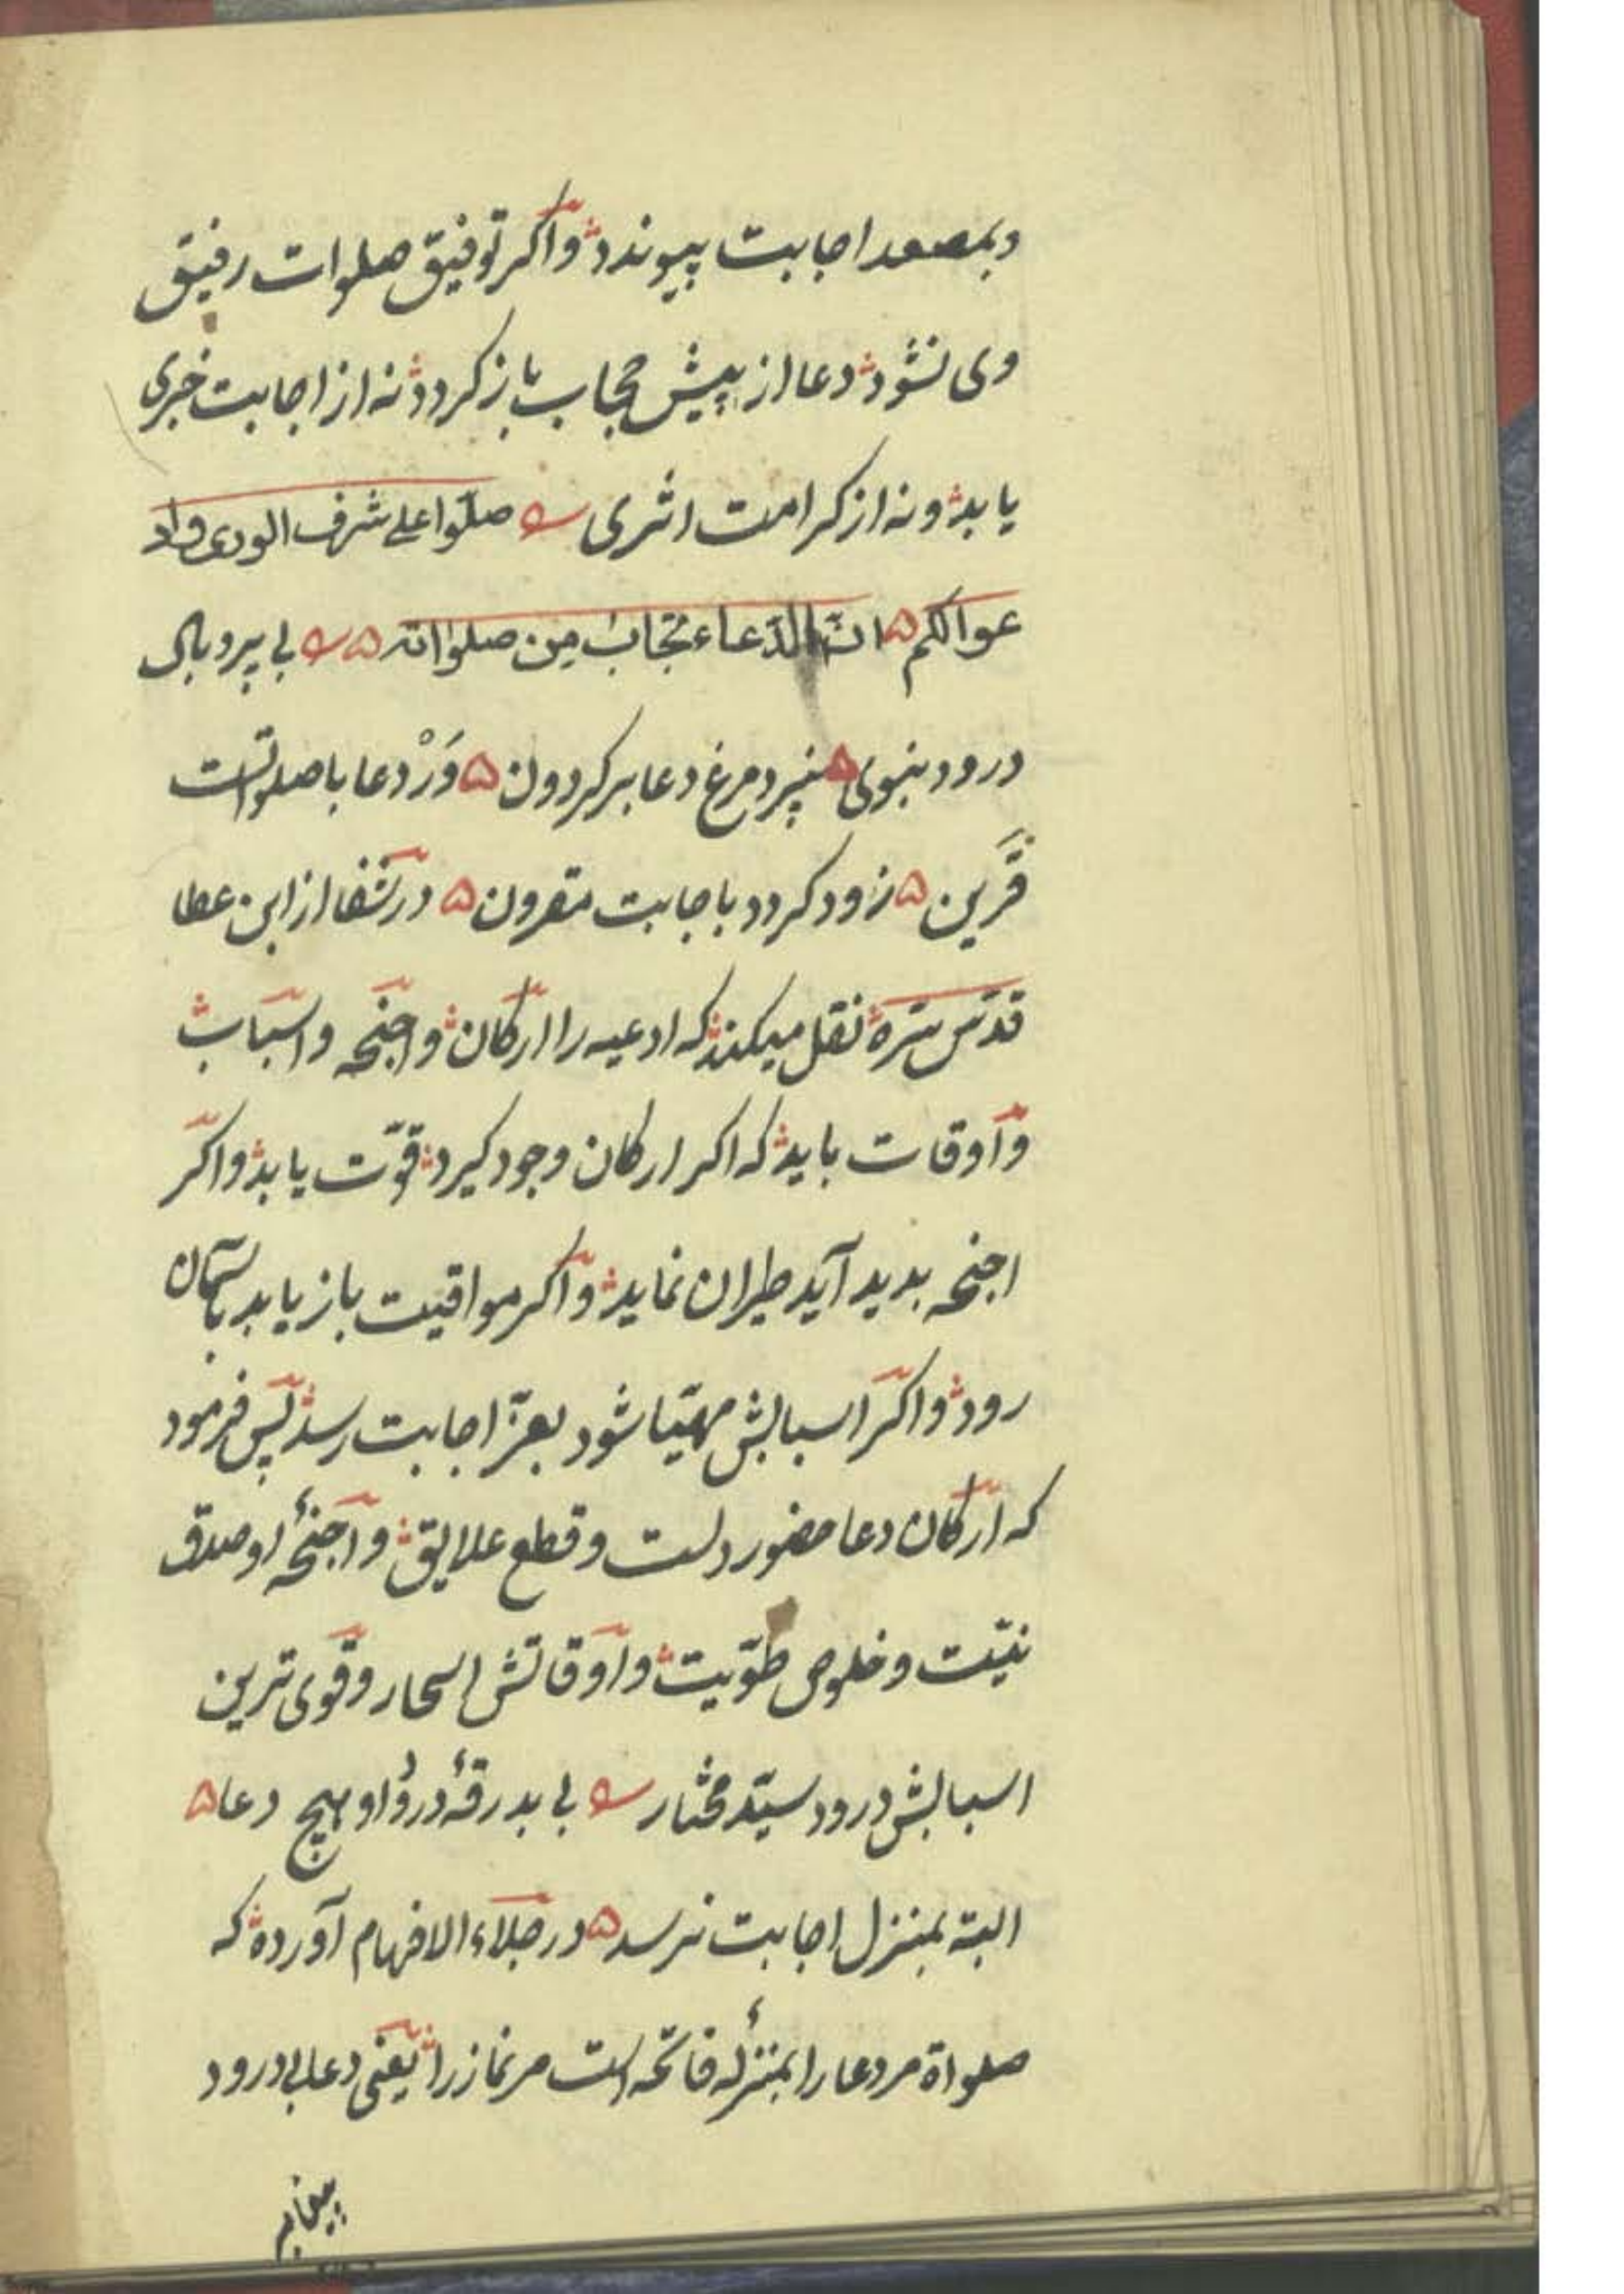 وبمصعد اجابت پیوندد واکر توفیق صلوات رفیق
وی نشود دعا از پیش حجاب باز کردد نه از اجابت خبری
یابد ونه از کرامت اثری صلّوا علی شرف الوری
عوالکم انّ الدّعاء مجاب من صلواته بی پر وبال
درود نبوی نپرد مرغ دعا بر کردون وَرْ دعا با صلواتست
قرین زود کردد باجابت مقرون در شفا از ابن عطا
قدّس سرّه نقل میکند که ادعیه را ارکان واجنحه واسباب
واوقات باید که اکر ارکان وجود کیرد قوّت یابد واکر
اجنحه بدید آید طیران نماید واکر مواقیت بازیابد بآسمان
رود واکر اسبابش مهیّا شود بعزّ اجابت رسد پس فرمود
که ارکان دعا حضور دلست وقطع علایق واجنحهٔ او صدق
نیّت وخلوص طویّت واوقاتش اسحار وقوی ترین
اسبابش درود سیّد مختار بی بدرقهٔ درود او هیچ دعا
البته بمنزل اجابت نرسد در جلاء الافهام آورده که
صلواة مر دعا را بمنزلهٔ فاتحه است مر نماز را یعنی دعا بی درود